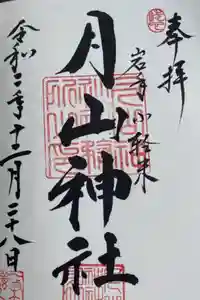 奉拝
岩手 小軽米
月山神社
令和二年十一月二十八日